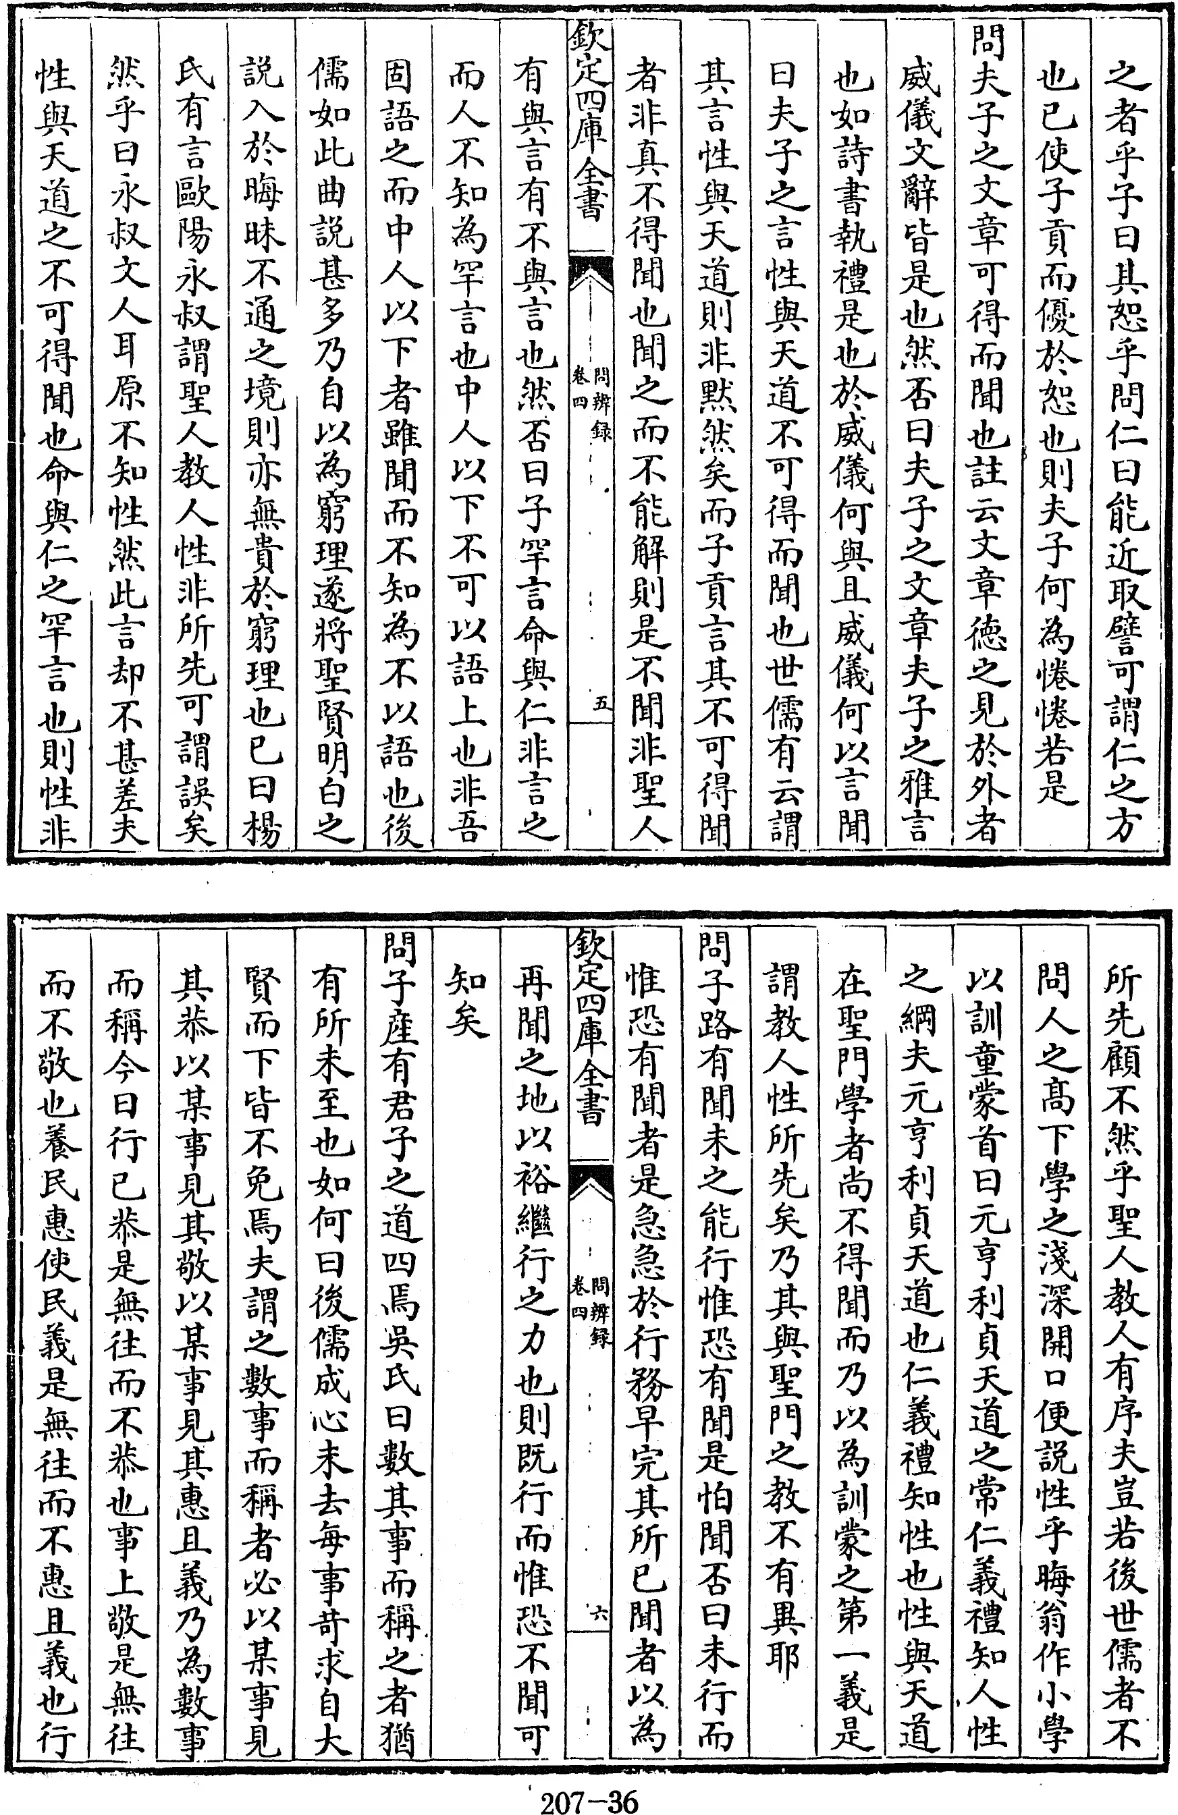 之者乎子曰其恕乎問仁曰能近取譬可謂仁之方
也已使子貢而優於恕也則夫子何為惓惓若是
問夫子之文章可得而聞也註云文章德之見於外者
威儀文辭皆是也然否曰夫子之文章夫子之雅言
也如詩書執禮是也於威儀何與且威儀何以言聞
曰夫子之言性與天道不可得而聞也世儒有云謂
其言性與天道則非默然矣而子貢言其不可得聞
者非真不得聞也聞之而不能解則是不聞非聖人
欽定四庫全書
問辨録
卷四
五
有與言有不與言也然否曰子罕言命與仁非言之
而人不知為罕言也中人以下不可以語上也非吾
固語之而中人以下者雖聞而不知為不以語也後
儒如此曲說甚多乃自以為窮理遂將聖賢明白之
說入於晦昧不通之境則亦無貴於窮理也已曰楊
氏有言歐陽永叔謂聖人教人性非所先可謂誤矣
然乎曰永叔文人耳原不知性然此言却不甚差夫
性與天道之不可得聞也命與仁之罕言也則性非
所先顧不然乎聖人教人有序夫豈若後世儒者不
問人之髙下學之淺深開口便說性乎晦翁作小學
以訓童蒙首曰元亨利貞天道之常仁義禮知人性
之綱夫元亨利貞天道也仁義禮知性也性與天道
在聖門學者尚不得聞而乃以為訓蒙之第一義是
謂教人性所先矣乃其與聖門之教不有異耶
問子路有聞未之能行惟恐有聞是怕聞否曰未行而
惟恐有聞者是急急於行務早完其所已聞者以為
欽定四庫全書
問辨録
卷四
六
再聞之地以裕繼行之力也則既行而惟恐不聞可
知矣
問子產有君子之道四焉吳氏曰數其事而稱之者猶
有所未至也如何曰後儒成心未去每事苛求自大
賢而下皆不免焉夫謂之數事而稱者必以某事見
其恭以某事見其敬以某事見其惠且義乃為數事
而稱今曰行己恭是無往而不恭也事上敬是無往
而不敬也養民惠使民義是無往而不惠且義也行
207-36